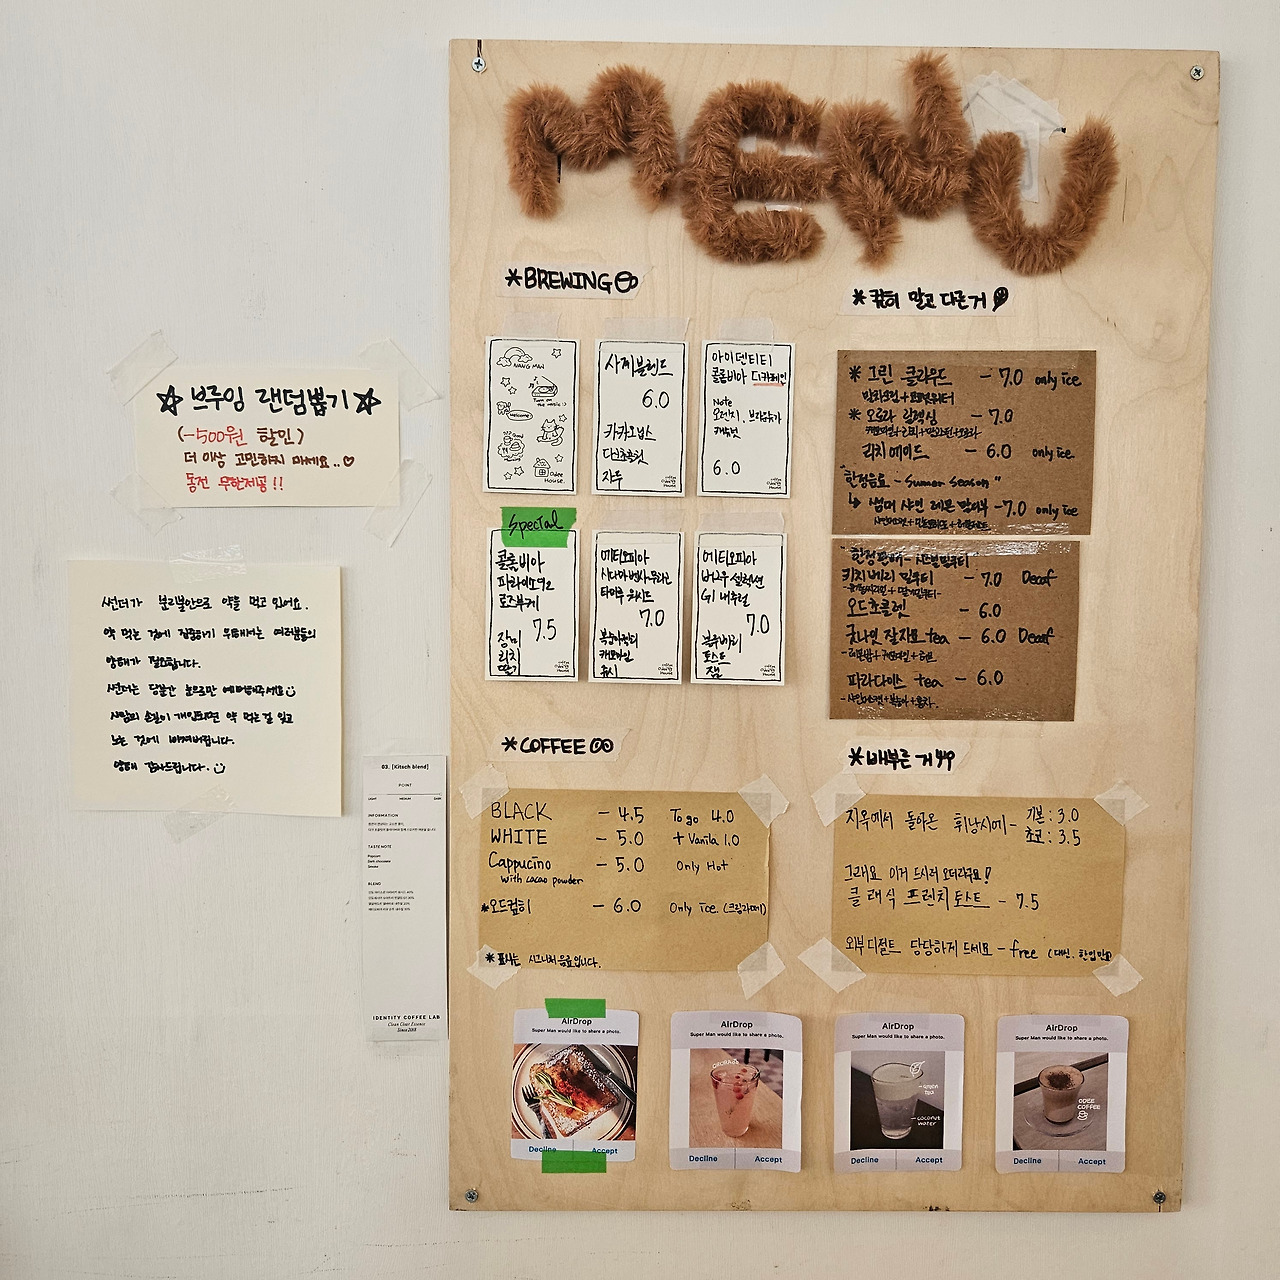 MENU
*BREWING
NANG MAN
Turn on
the music :)
welcome
Odee
House.
사찌블렌드
6.0
카카오닙스
다크초콜릿
자두
coffee
Odee
House
아이덴티티
콜롬비아 디카페인
Note
오렌지, 브라운슈가
캐슈넛
6.0
coffee
Odee
House
Special
콜롬비아
파라이소92
로즈부케
7.5
장미
리치
딸기
coffee
Odee
House
에티오피아
시다마 벤사 무라고
타이루 워시드
7.0
복숭아
캐모마일
쥬시
coffee
Odee
House
에티오피아
버구우 셀렉션
G1 내추럴
7.0
복숭베리
토스트
잼
coffee
Odee
House
*커히 말고 다른거
* 그린 클라우드 - 7.0 only ice
말차크림+코코넛워터
* 오로라 릴렉싱 - 7.0
리치에이드 - 6.0 only ice
"한정음료 - Sumer season"
↳ 썸머 샤인 레몬 -7.0 only ice
키치베리 밀크티 - 7.0 Decaf
오드초콜렛 - 6.0
굿나잇 잘자요 tea - 6.0 Decaf
파라다이스 tea - 6.0
*COFFEE
BLACK - 4.5 To go 4.0
WHITE - 5.0 + Vanila 1.0
Cappucino - 5.0 Only Hot
with cacao powder
*오드커히 - 6.0 Only ice. (크림라떼)
* 표시는 시그니처 음료입니다.
*배부른 거
지옥에서 돌아온 휘낭시에- 기본: 3.0
초코: 3.5
그래요 이거 드시러 오더라구요!
클래식 프렌치토스트 - 7.5
외부디저트 당당하게 드세요 - free (대신, 한입만)
AirDrop
Super Man would like to share a photo.
Decline Accept
AirDrop
Super Man would like to share a photo.
Decline Accept
AirDrop
Super Man would like to share a photo.
coconut
water
Decline Accept
AirDrop
Super Man would like to share a photo.
ODEE
COFFEE
Decline Accept
☆ 브루잉 랜덤뽑기 ☆
(-500원 할인)
더 이상 고민하지 마세요..♡
동전 무한제공!!
썬더가 분리불안으로 약을 먹고 있어요.
약 먹는 것에 집중하기 위해서는 여러분들의
양해가 필요합니다.
썬더는 당분간 눈으로만 예뻐해주세요
사람의 손길이 개입되면 약 먹는걸 잊고
노는 것에 빠져버립니다.
양해 감사드립니다.
03. [Kitsch blend]
POINT
LIGHT MEDIUM DARK
INFORMATION
TASTE NOTE
Popcorn
Dark chocolate
Smoke
BLEND
IDENTITY COFFEE LAB
Clean Clear Essence
Since 2018